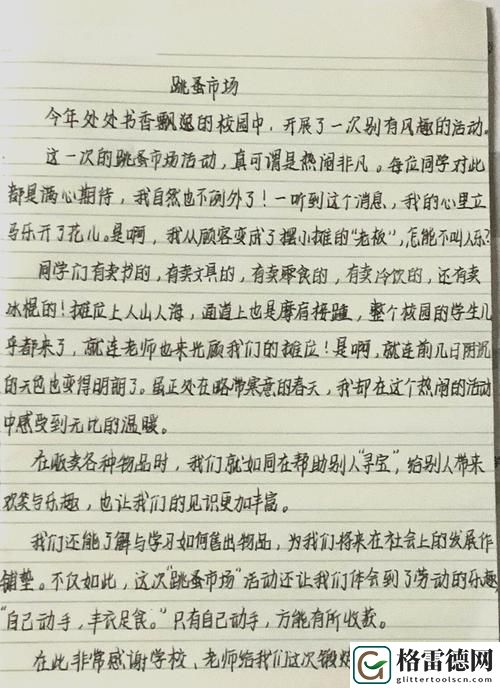 跳蚤市场
今年处处书香飘逸的校园中，开展了一次别有风趣的活动。
这一次的跳蚤市场活动，真可谓是热闹非凡。每位同学对此
都是满心期待，我自然也不例外了！一听到这个消息，我的心里立
马乐开了花儿。是啊，我从顾客变成了摆小摊的“老板”，怎能不叫人乐？
同学们有卖书的，有卖文具的，有卖零食的，有卖冷饮的，还有卖
冰棍的！摊位上人山人海，通道上也是摩肩接踵，整个校园的学生几
乎都来了，就连老师也来光顾我们的摊位！是啊，就连前几日阴沉
的天色也变得明朗了。虽正处在略带寒意的春天，我却在这个热闹的活动
中感受到无比的温暖。
在贩卖各种物品时，我们就如同在帮助别人“寻宝”，给别人带来
欢笑与乐趣，也让我们的见识更加丰富。
我们还能了解与学习如何售出物品，为我们将来在社会上的发展作
铺垫。不仅如此，这次“跳蚤市场”活动还让我们体会到了劳动的乐趣
“自己动手，丰衣足食。”只有自己动手，方能有所收获。
在此非常感谢学校、老师给我们这次锻炼
格雷德网
glittertoolscn.com